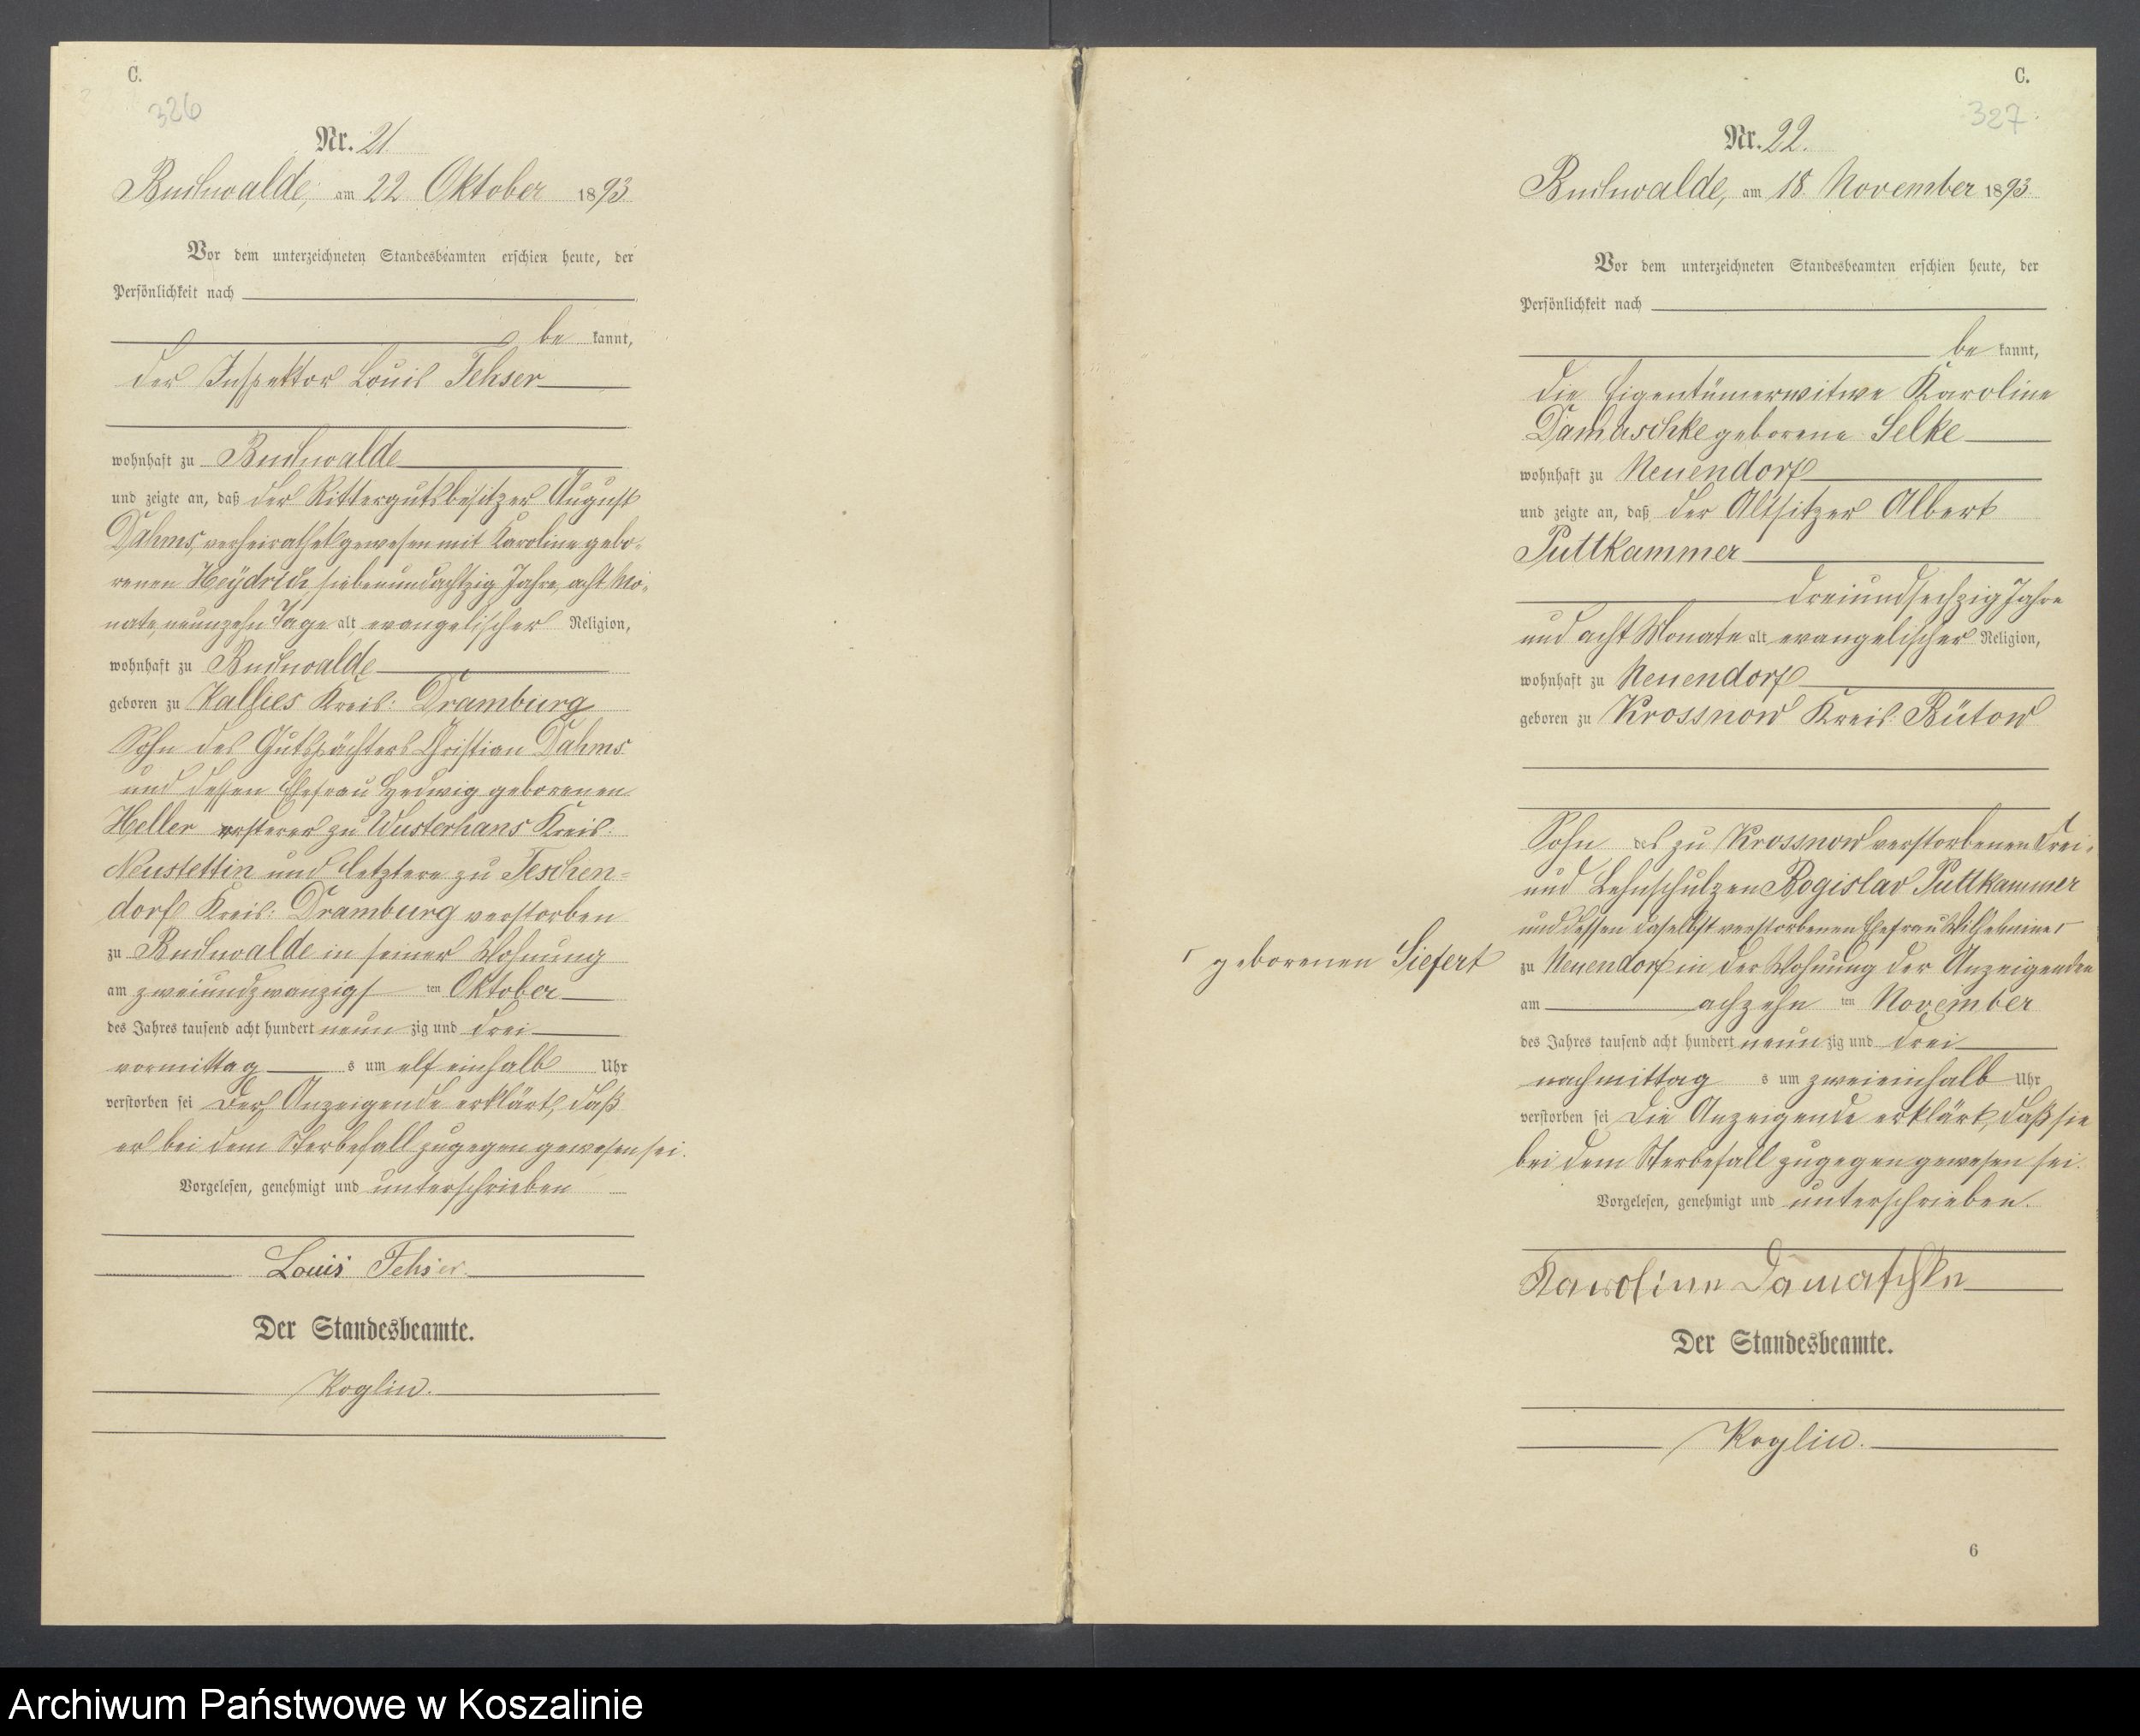 C.
326
Nr. 21
Buchwalde, am 22. Oktober 1893
Vor dem unterzeichneten Standesbeamten erschien heute, der
Persönlichkeit nach
be kannt,
der Inspektor Louis Fehser
wohnhaft zu Buchwalde
und zeigte an, daß der Rittergutsbesitzer August
Dahms, verheirathet gewesen mit Karoline gebo-
renen Heydrich, siebenundachtzig Jahre, acht Mo-
nate, neunzehn Tage alt evangelischer Religion,
wohnhaft zu Buchwalde
geboren zu Kallies Kreis: Dramburg
Sohn des Gutspächters Christian Dahms
und dessen Ehefrau Hedwig geborenen
Heller ersterer zu Wusterhans Kreis:
Neustettin und letztere zu Teschen-
dorf Kreis: Dramburg verstorben
zu Buchwalde in seiner Wohnung
am zweiundzwanzigs ten Oktober
des Jahres tausend acht hundert neun zig und drei
vormittag s um elf einhalb Uhr
verstorben sei Der Anzeigende erklärt, daß
er bei dem Sterbefall zugegen gewesen sei.
Vorgelesen, genehmigt und unterschrieben
Louis Fehser.
Der Standesbeamte.
Koglin.
C.
327.
Nr. 22.
Buchwalde, am 18. November 1893
Vor dem unterzeichneten Standesbeamten erschien heute, der
Persönlichkeit nach
be kannt,
die Eigentümerwitwe Karoline
Damaschke geborene Selke
wohnhaft zu Neuendorf
und zeigte an, daß der Altsitzer Albert
Puttkammer
dreiundsechzig Jahre
und acht Monate alt evangelischer Religion,
wohnhaft zu Neuendorf
geboren zu Krossnow Kreis: Bütow
Sohn des zu Krossnow verstorbenen Frei-
und Lehnschulzen Bogislav Puttkammer
und dessen daselbst verstorbenen Ehefrau Wilhelmine ⌈
⌈ geborenen Siefert
zu Neuendorf in der Wohnung der Anzeigenden
am achzehn ten November
des Jahres tausend acht hundert neun zig und drei
nachmittag s um zweieinhalb Uhr
verstorben sei Die Anzeigende erklärt, daß sie
bei dem Sterbefall zugegen gewesen sei.
Vorgelesen, genehmigt und unterschrieben.
Karoline Damaschke
Der Standesbeamte.
Koglin.
6
Archiwum Państwowe w Koszalinie